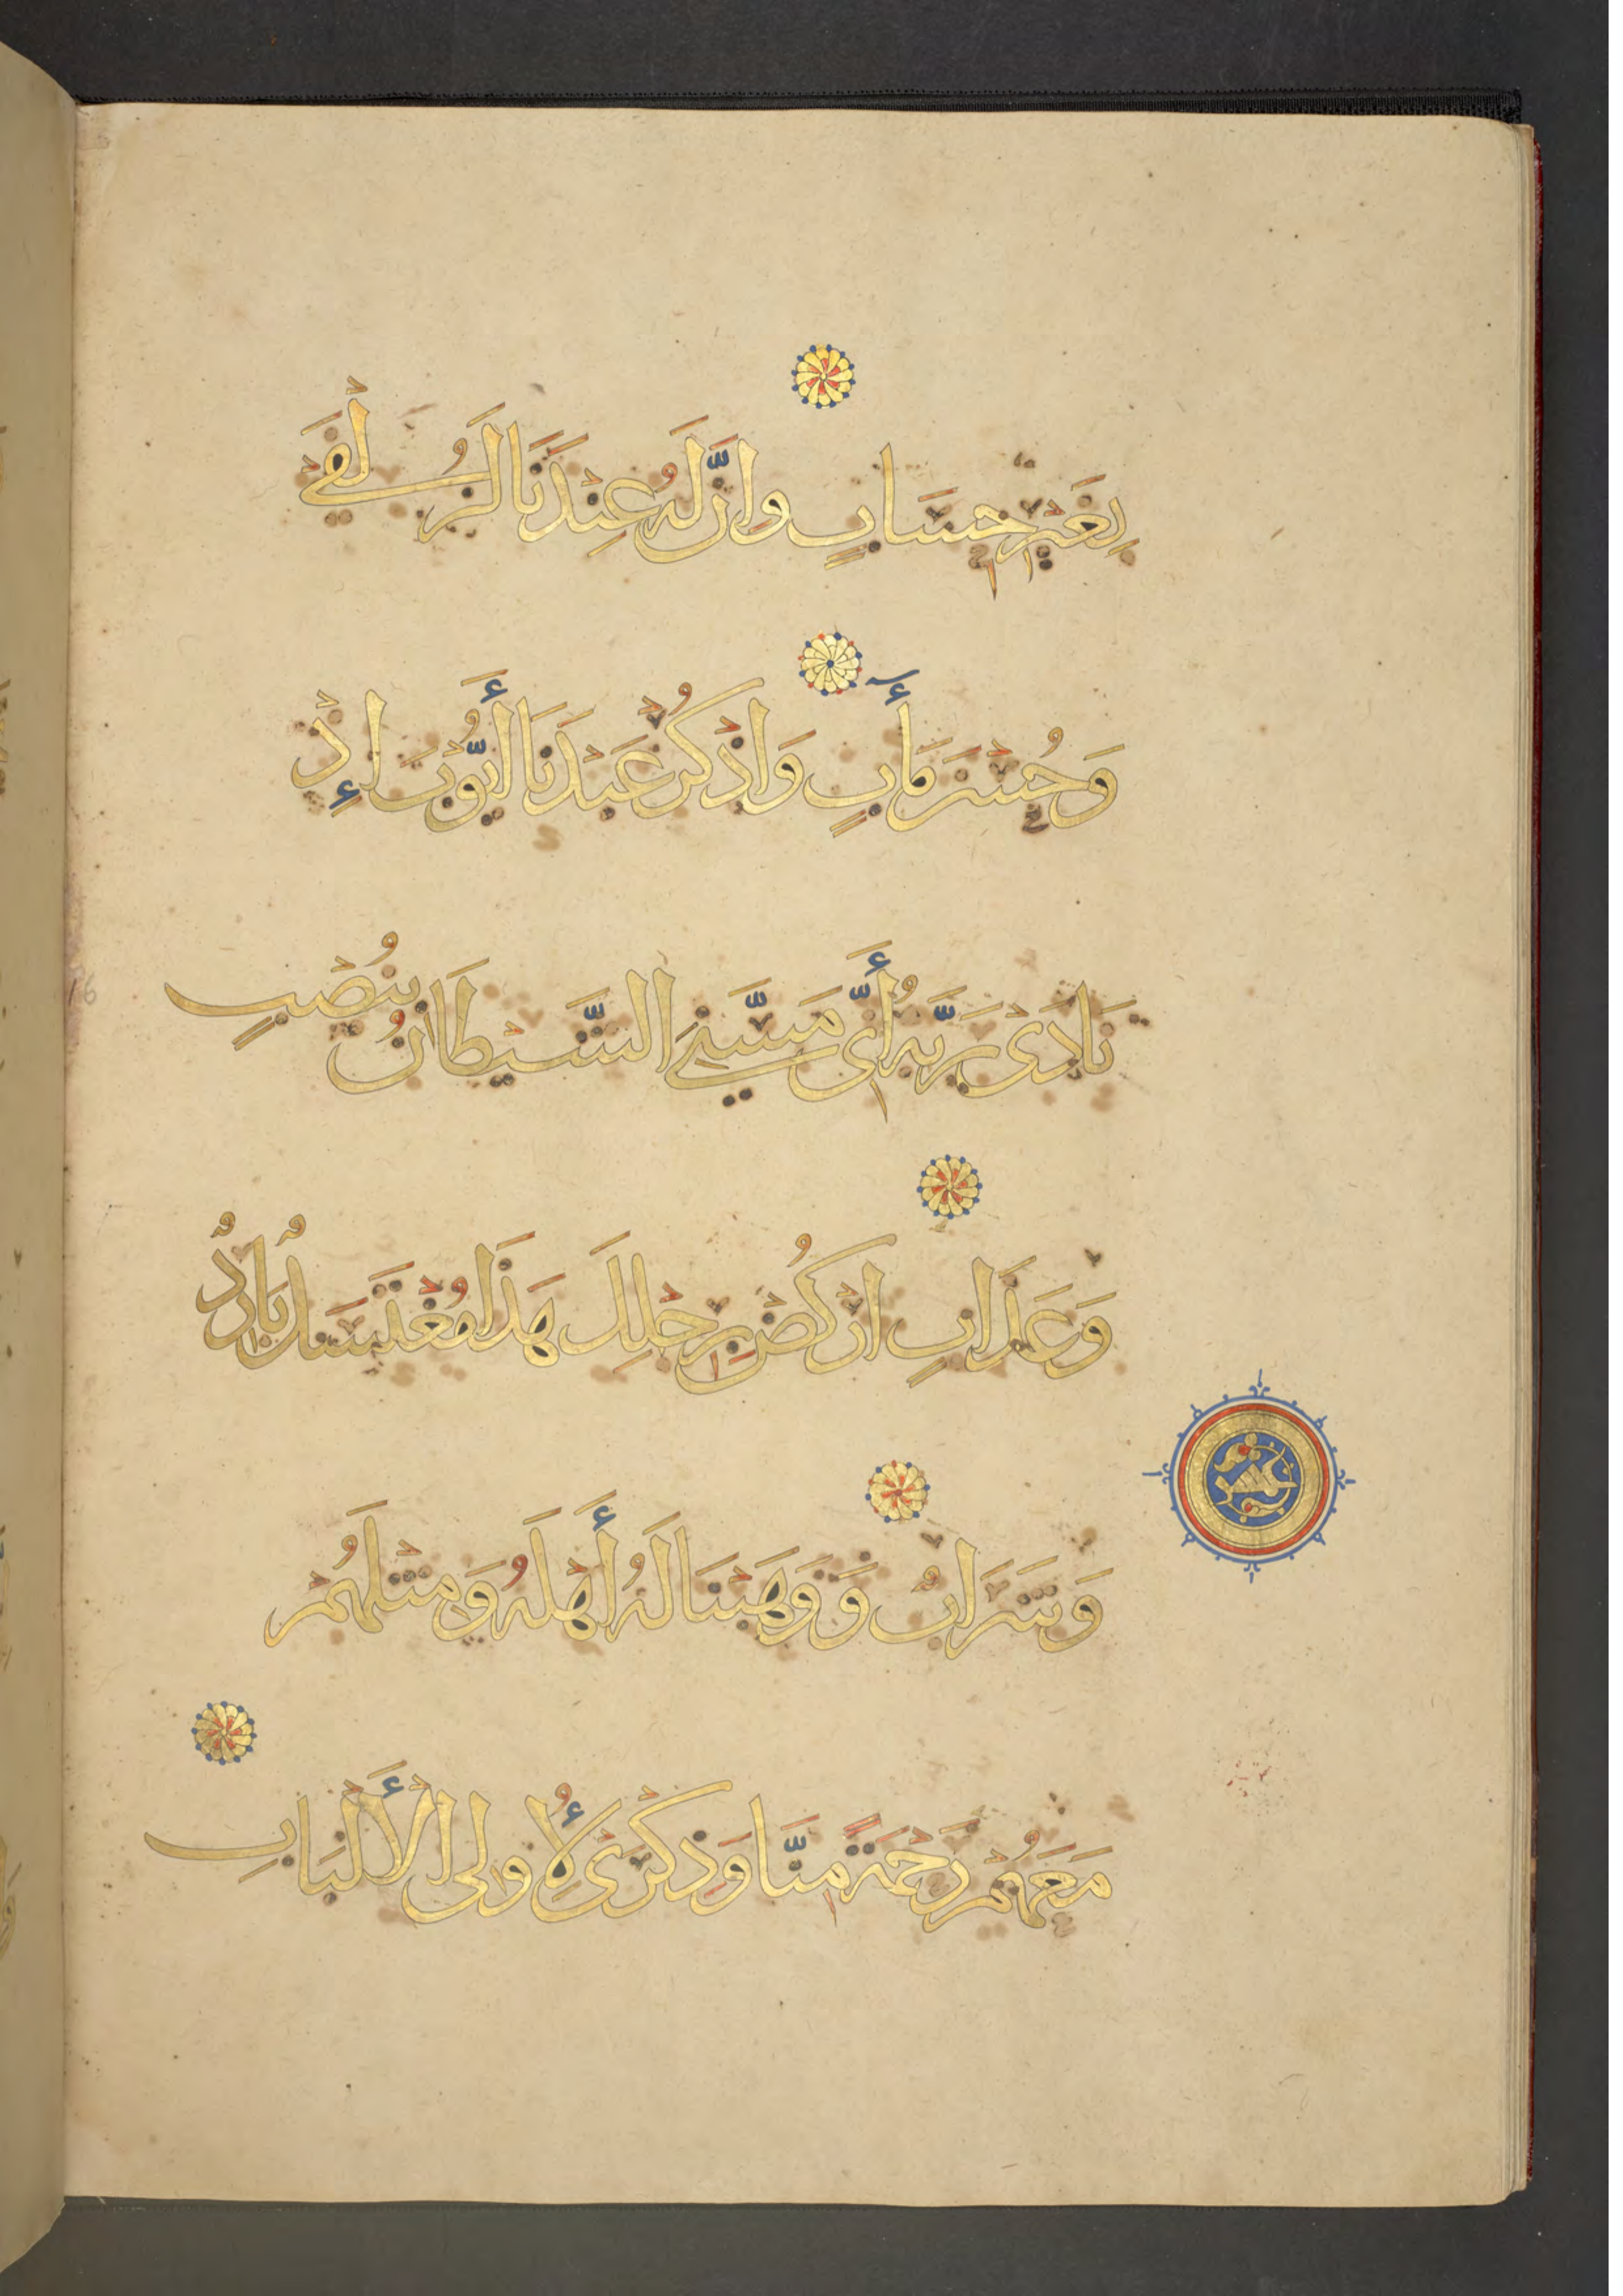 بِغَيْرِ حِسَابٍ وَإِنَّ لَهُ عِنْدَنَا لَزُلْفَىٰ
وَحُسْنَ مَـَٔابٍ وَاذْكُرْ عَبْدَنَا أَيُّوبَ إِذْ
نَادَى رَبَّهُ أَنِّى مَسَّنِيَ الشَّيْطَانُ بِنُصْبٍ
وَعَذَابٍ ارْكُضْ بِرِجْلِكَ هَذَا مُغْتَسَلٌ بَارِدٌ
وَشَرَابٌ وَوَهَبْنَا لَهُ أَهْلَهُ وَمِثْلَهُمْ
مَعَهُمْ رَحْمَةً مِنَّا وَذِكْرَى لِأُولِى الْأَلْبَابِ